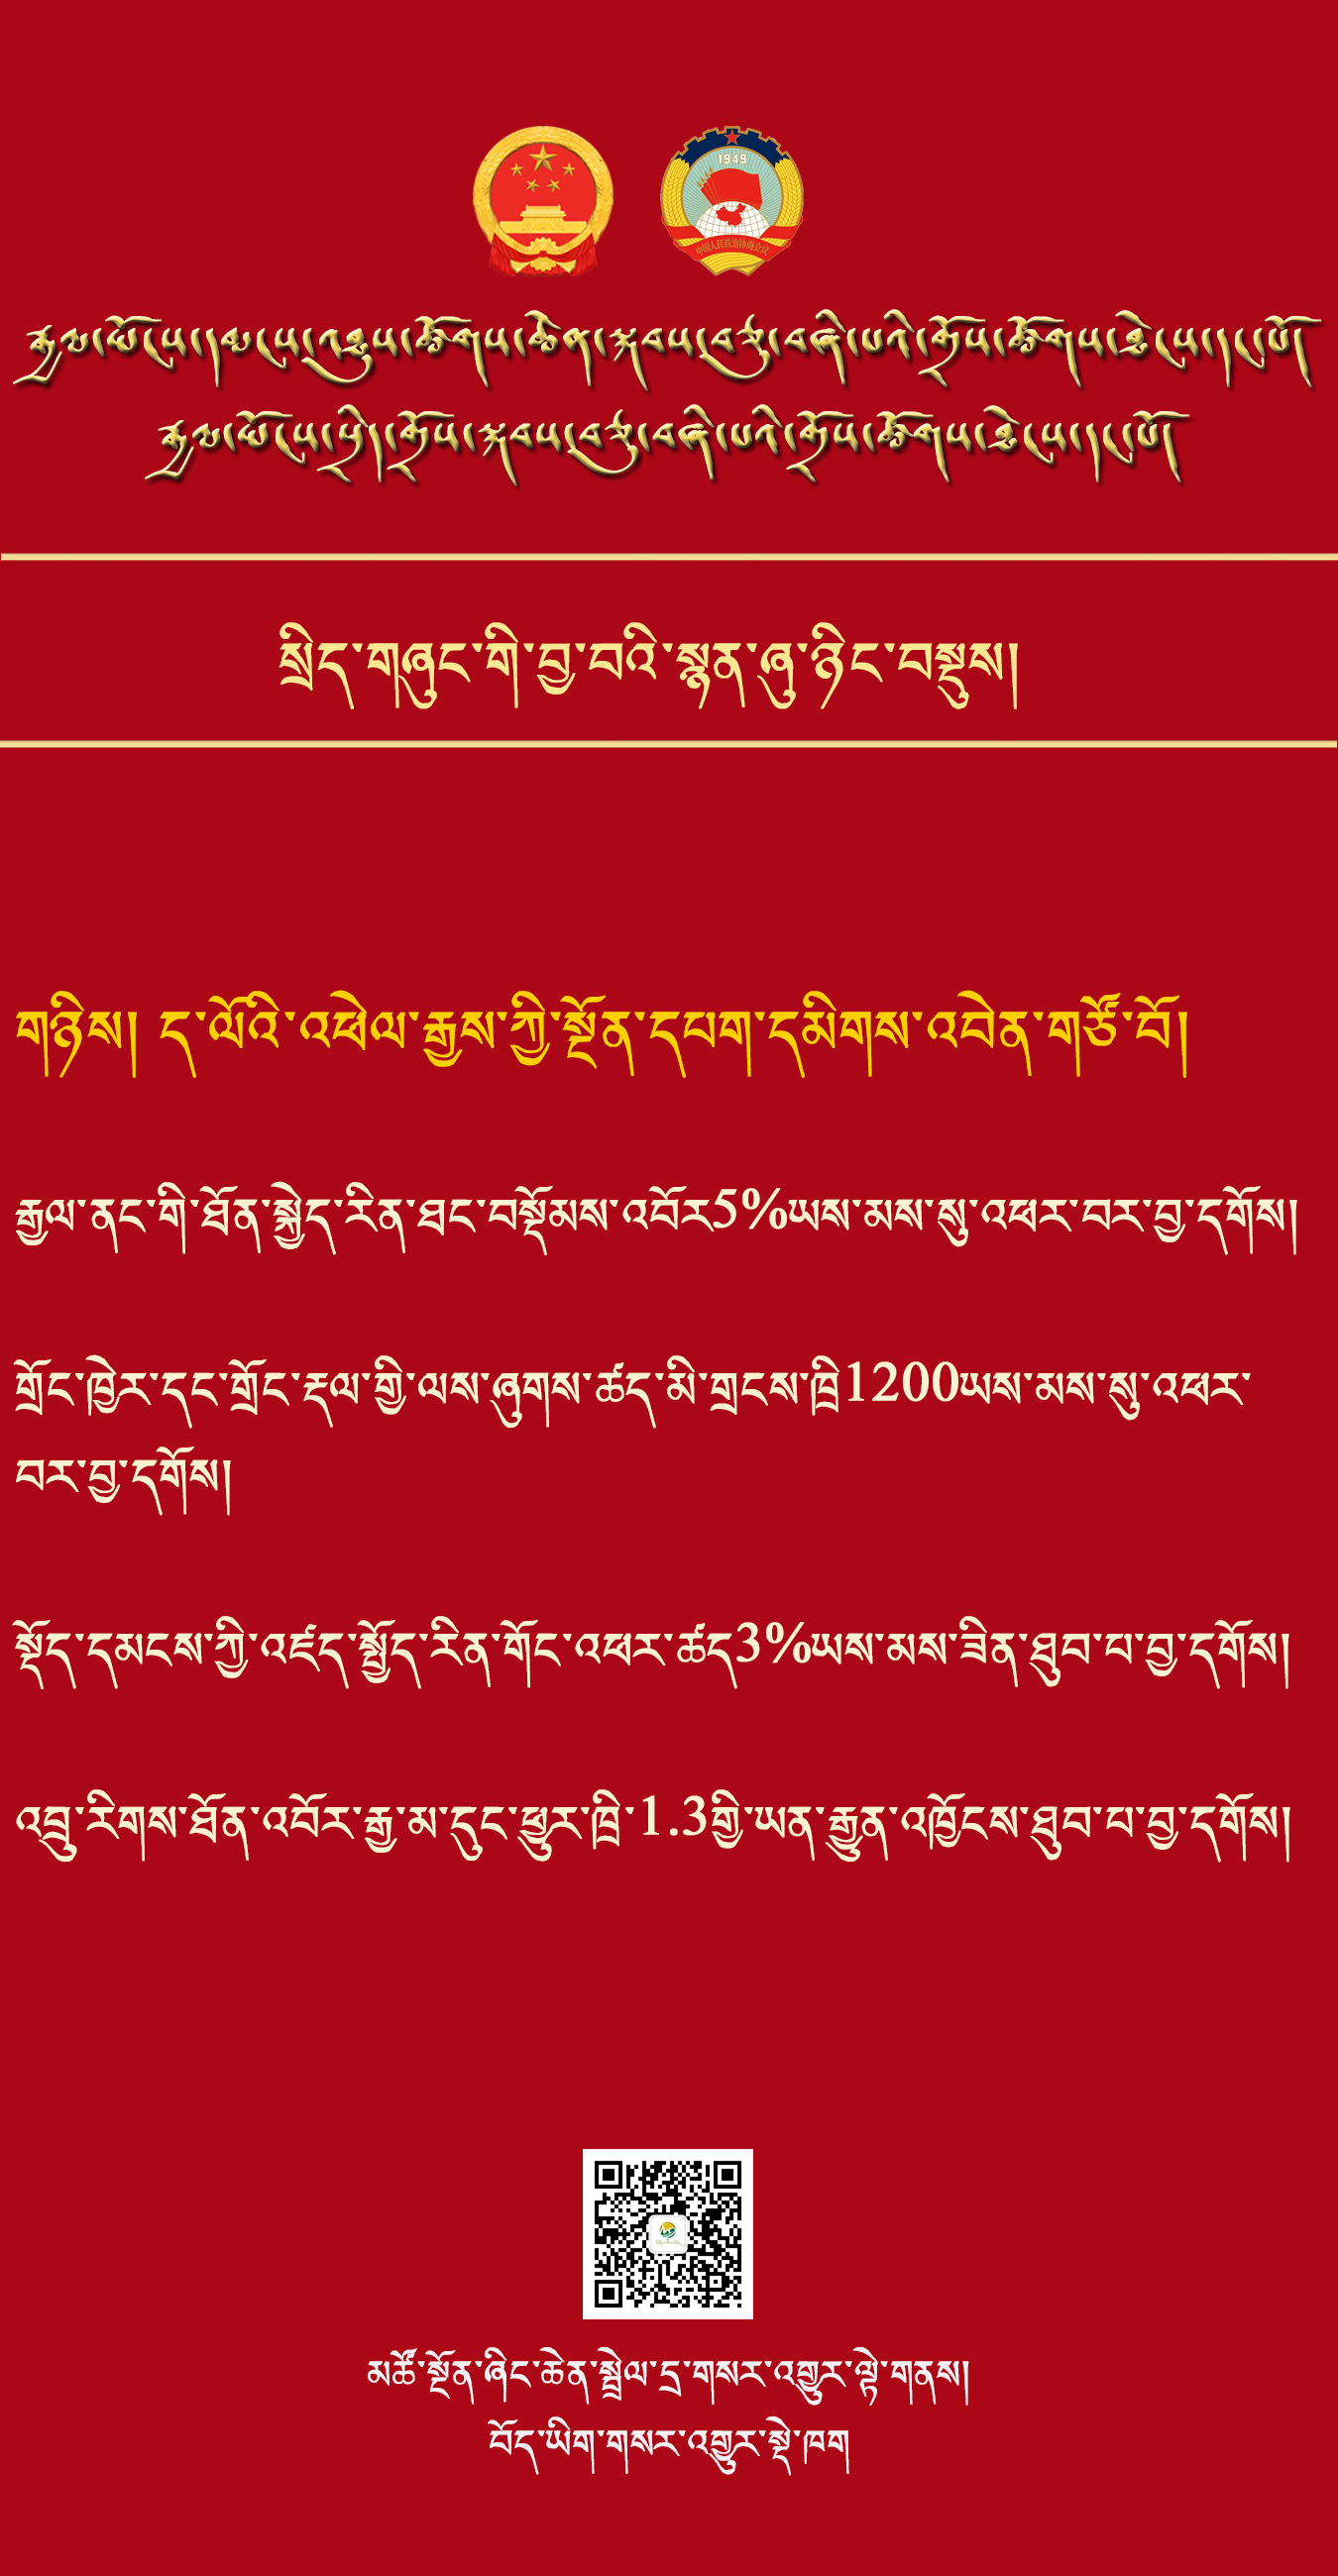 1949
中国人民政治协商会议
རྒྱལ་ཡོངས་དམངས་འཐུས་ཚོགས་ཆེན་སྐབས་བཅུ་བཞི་པའི་གྲོས་ཚོགས་ཐེངས་དང་པོ
རྒྱལ་ཡོངས་སྲིད་གྲོས་སྐབས་བཅུ་བཞི་པའི་གྲོས་ཚོགས་ཐེངས་དང་པོ
སྲིད་གཞུང་གི་བྱ་བའི་སྙན་ཞུ་ཉིང་བསྡུས།
གཉིས། ད་ལོའི་འཕེལ་རྒྱས་ཀྱི་སྔོན་དཔག་དམིགས་འབེན་གཙོ་བོ།
རྒྱལ་ནང་གི་ཐོན་སྐྱེད་རིན་ཐང་བསྡོམས་འབོར5%ཡས་མས་སུ་འཕར་བར་བྱ་དགོས།
གྲོང་ཁྱེར་དང་གྲོང་རྡལ་གྱི་ལས་ཞུགས་ཚད་མི་གྲངས་ཁྲི1200ཡས་མས་སུ་འཕར་
བར་བྱ་དགོས།
སྡོད་དམངས་ཀྱི་འཛད་སྤྱོད་རིན་གོང་འཕར་ཚད3%ཡས་མས་ཟིན་ཐུབ་པ་བྱ་དགོས།
འབྲུ་རིགས་ཐོན་འབོར་རྒྱ་མ་དུང་ཕྱུར་ཁྲི་1.3གྱི་ཡན་རྒྱུན་འཁྱོངས་ཐུབ་པ་བྱ་དགོས།
མཚོ་སྔོན་ཞིང་ཆེན་སྦྲེལ་དྲ་གསར་འགྱུར་ལྟེ་གནས།
བོད་ཡིག་གསར་འགྱུར་སྡེ་ཁག